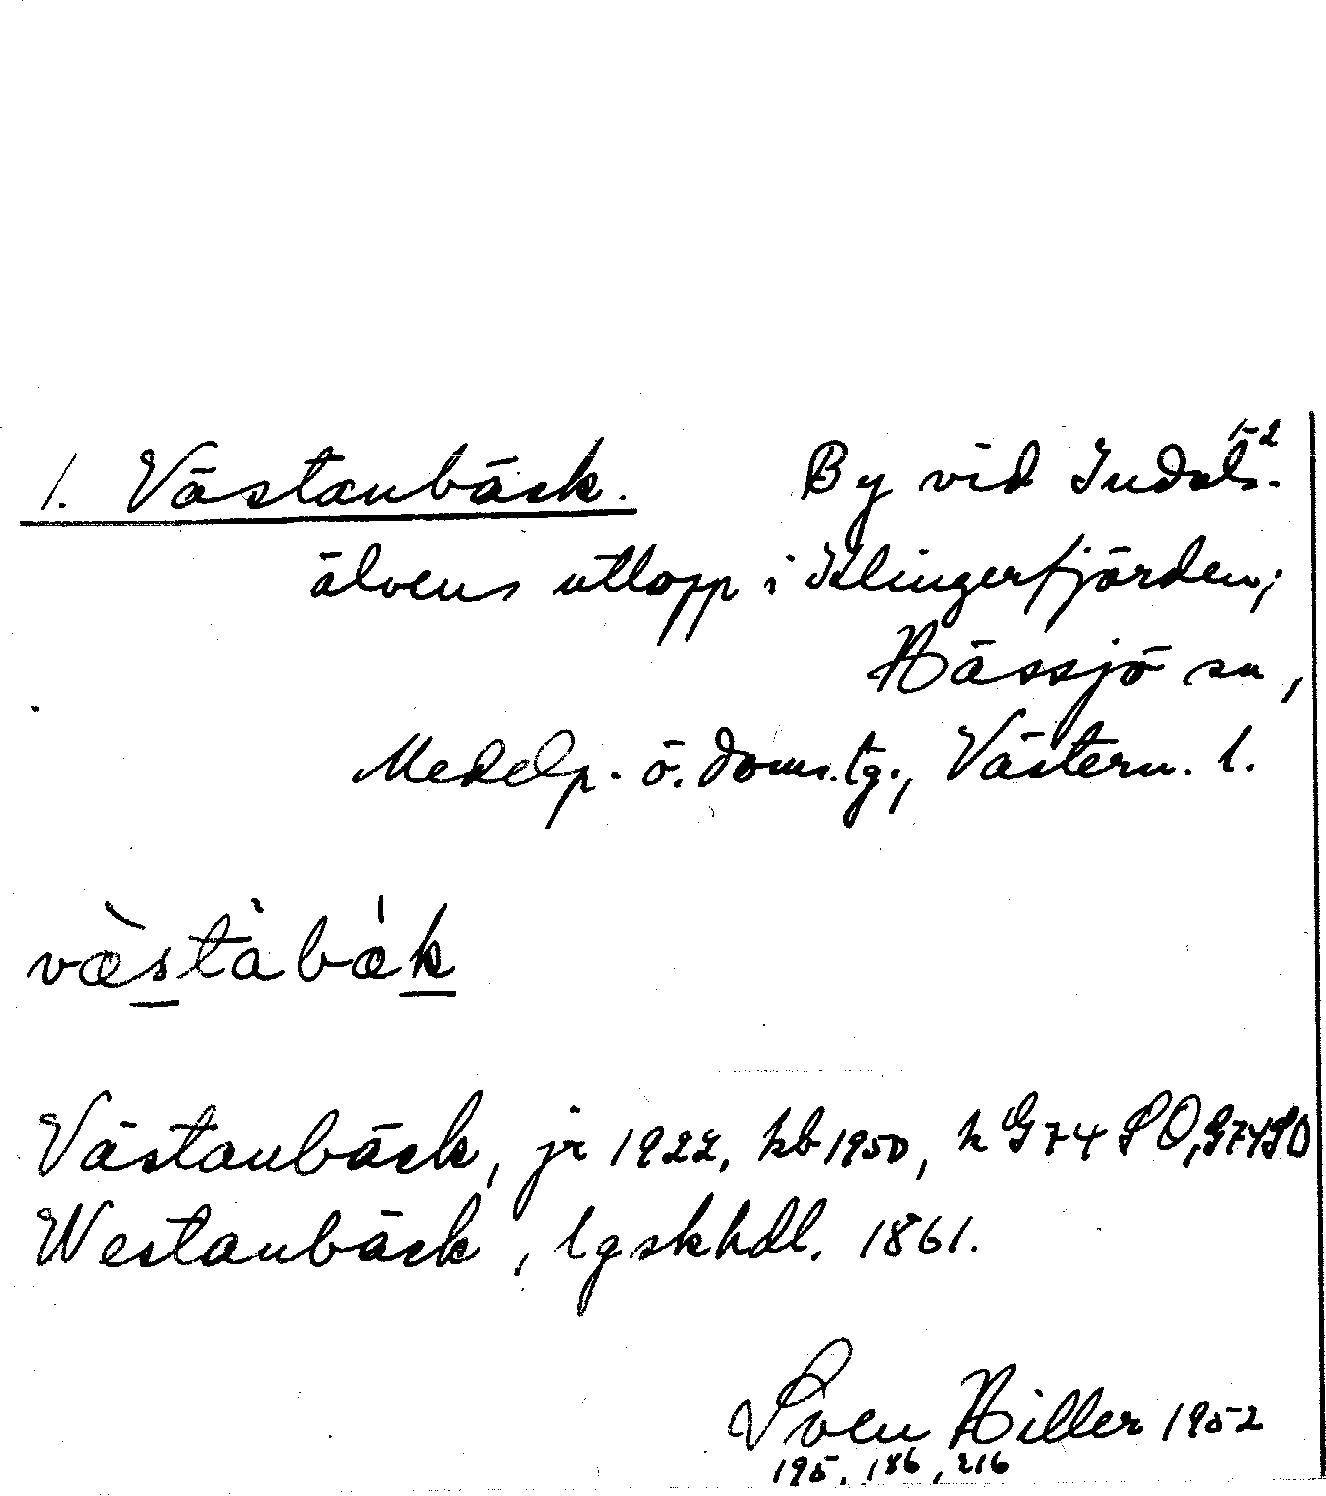 1. Västanbäck. By vid Indals- 1-2
älvens utlopp i Klingerfjärden;
Hässjö sn,
Medelp. ö. doms.tg., Västern. l.
væ̀stàbǽk
Västanbäck, jr 1922, kb 1950, k G74 SO, G74SO
Westanbäck, lgskhdl. 1861.
Sven Hiller 1952
195, 186, 216